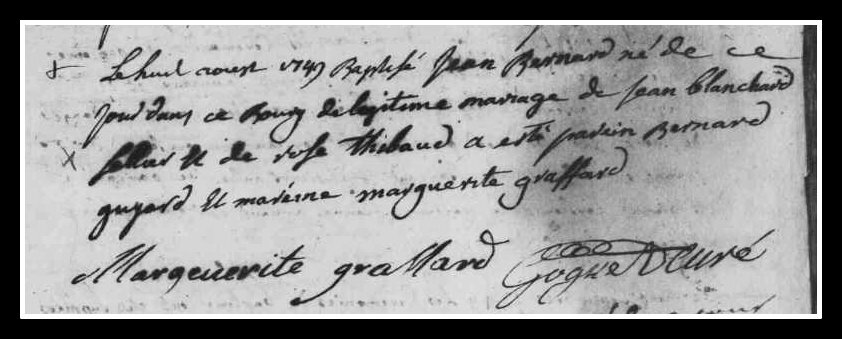 Le huit aoust 1747 Baptisé Jean Bernard né de ce
jour dans ce Bourg de legitime mariage de jean blanchard
sellier et de rose thibaud a esté parein Bernard
guyard et mareine marguerite graffard
Marguerite graffard Goguet Curé